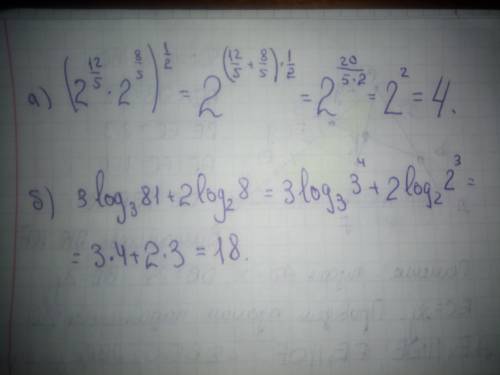 а) (2^(12/5) · 2^(8/5))^(1/2) = 2^((12/5 + 8/5) · 1/2) = 2^(20/(5·2)) = 2^2 = 4.
б) 3 log_3 81 + 2 log_2 8 = 3 log_3 3^4 + 2 log_2 2^3 =
= 3·4 + 2·3 = 18.